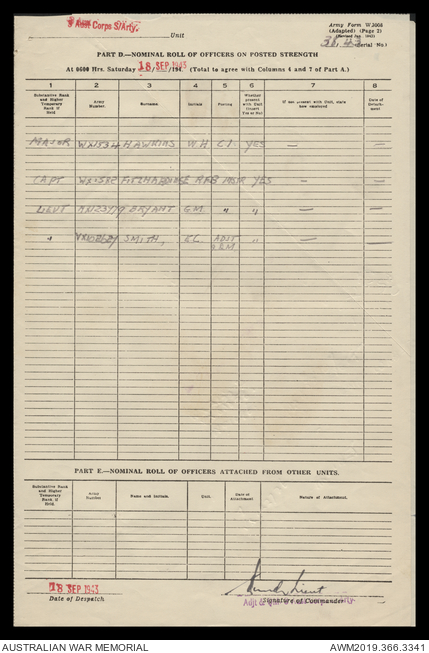 Aust Corps S/Arty.
Unit
Army Form W.3008
(Adapted) (Page 2)
(Serial No.)
PART D.—NOMINAL ROLL OF OFFICERS ON POSTED STRENGTH
At 0600 Hrs. Saturday 18 SEP 1943 /194 . (Total to agree with Columns 4 and 7 of Part A.)
1 2 3 4 5 6 7 8
Substantive Rank and Higher Temporary Rank if Held. Army Number. Surname. Initials Posting Whether present with Unit (insert Yes or No) If not present with Unit, state how employed Date of Detachment.
MAJOR WX1534 HAWKINS W.H. C.I. YES — —
CAPT R.F.B INSTR YES — —
LIEUT BRYANT G.M. " " — —
" SMITH, ADJT " — —
PART E.—NOMINAL ROLL OF OFFICERS ATTACHED FROM OTHER UNITS.
Substantive Rank and Higher Temporary Rank if Held. Army Number Name and Initials. Unit. Date of Attachment Nature of Attachment.
18 SEP 1943
Date of Despatch.
Lieut
Signature of Commander
AUSTRALIAN WAR MEMORIAL
AWM2019.366.3341